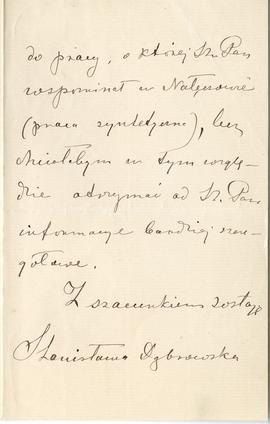 do pracy, o której Sz. Pan
wspominał w Nałęczowie
(praca syntetyczna), lecz
chciałbym w tym wzglę-
dzie otrzymać od Sz. Pana
informacye bardziej szcze-
gółowe.
Z szacunkiem zostaję
Stanisława Dąbrowska